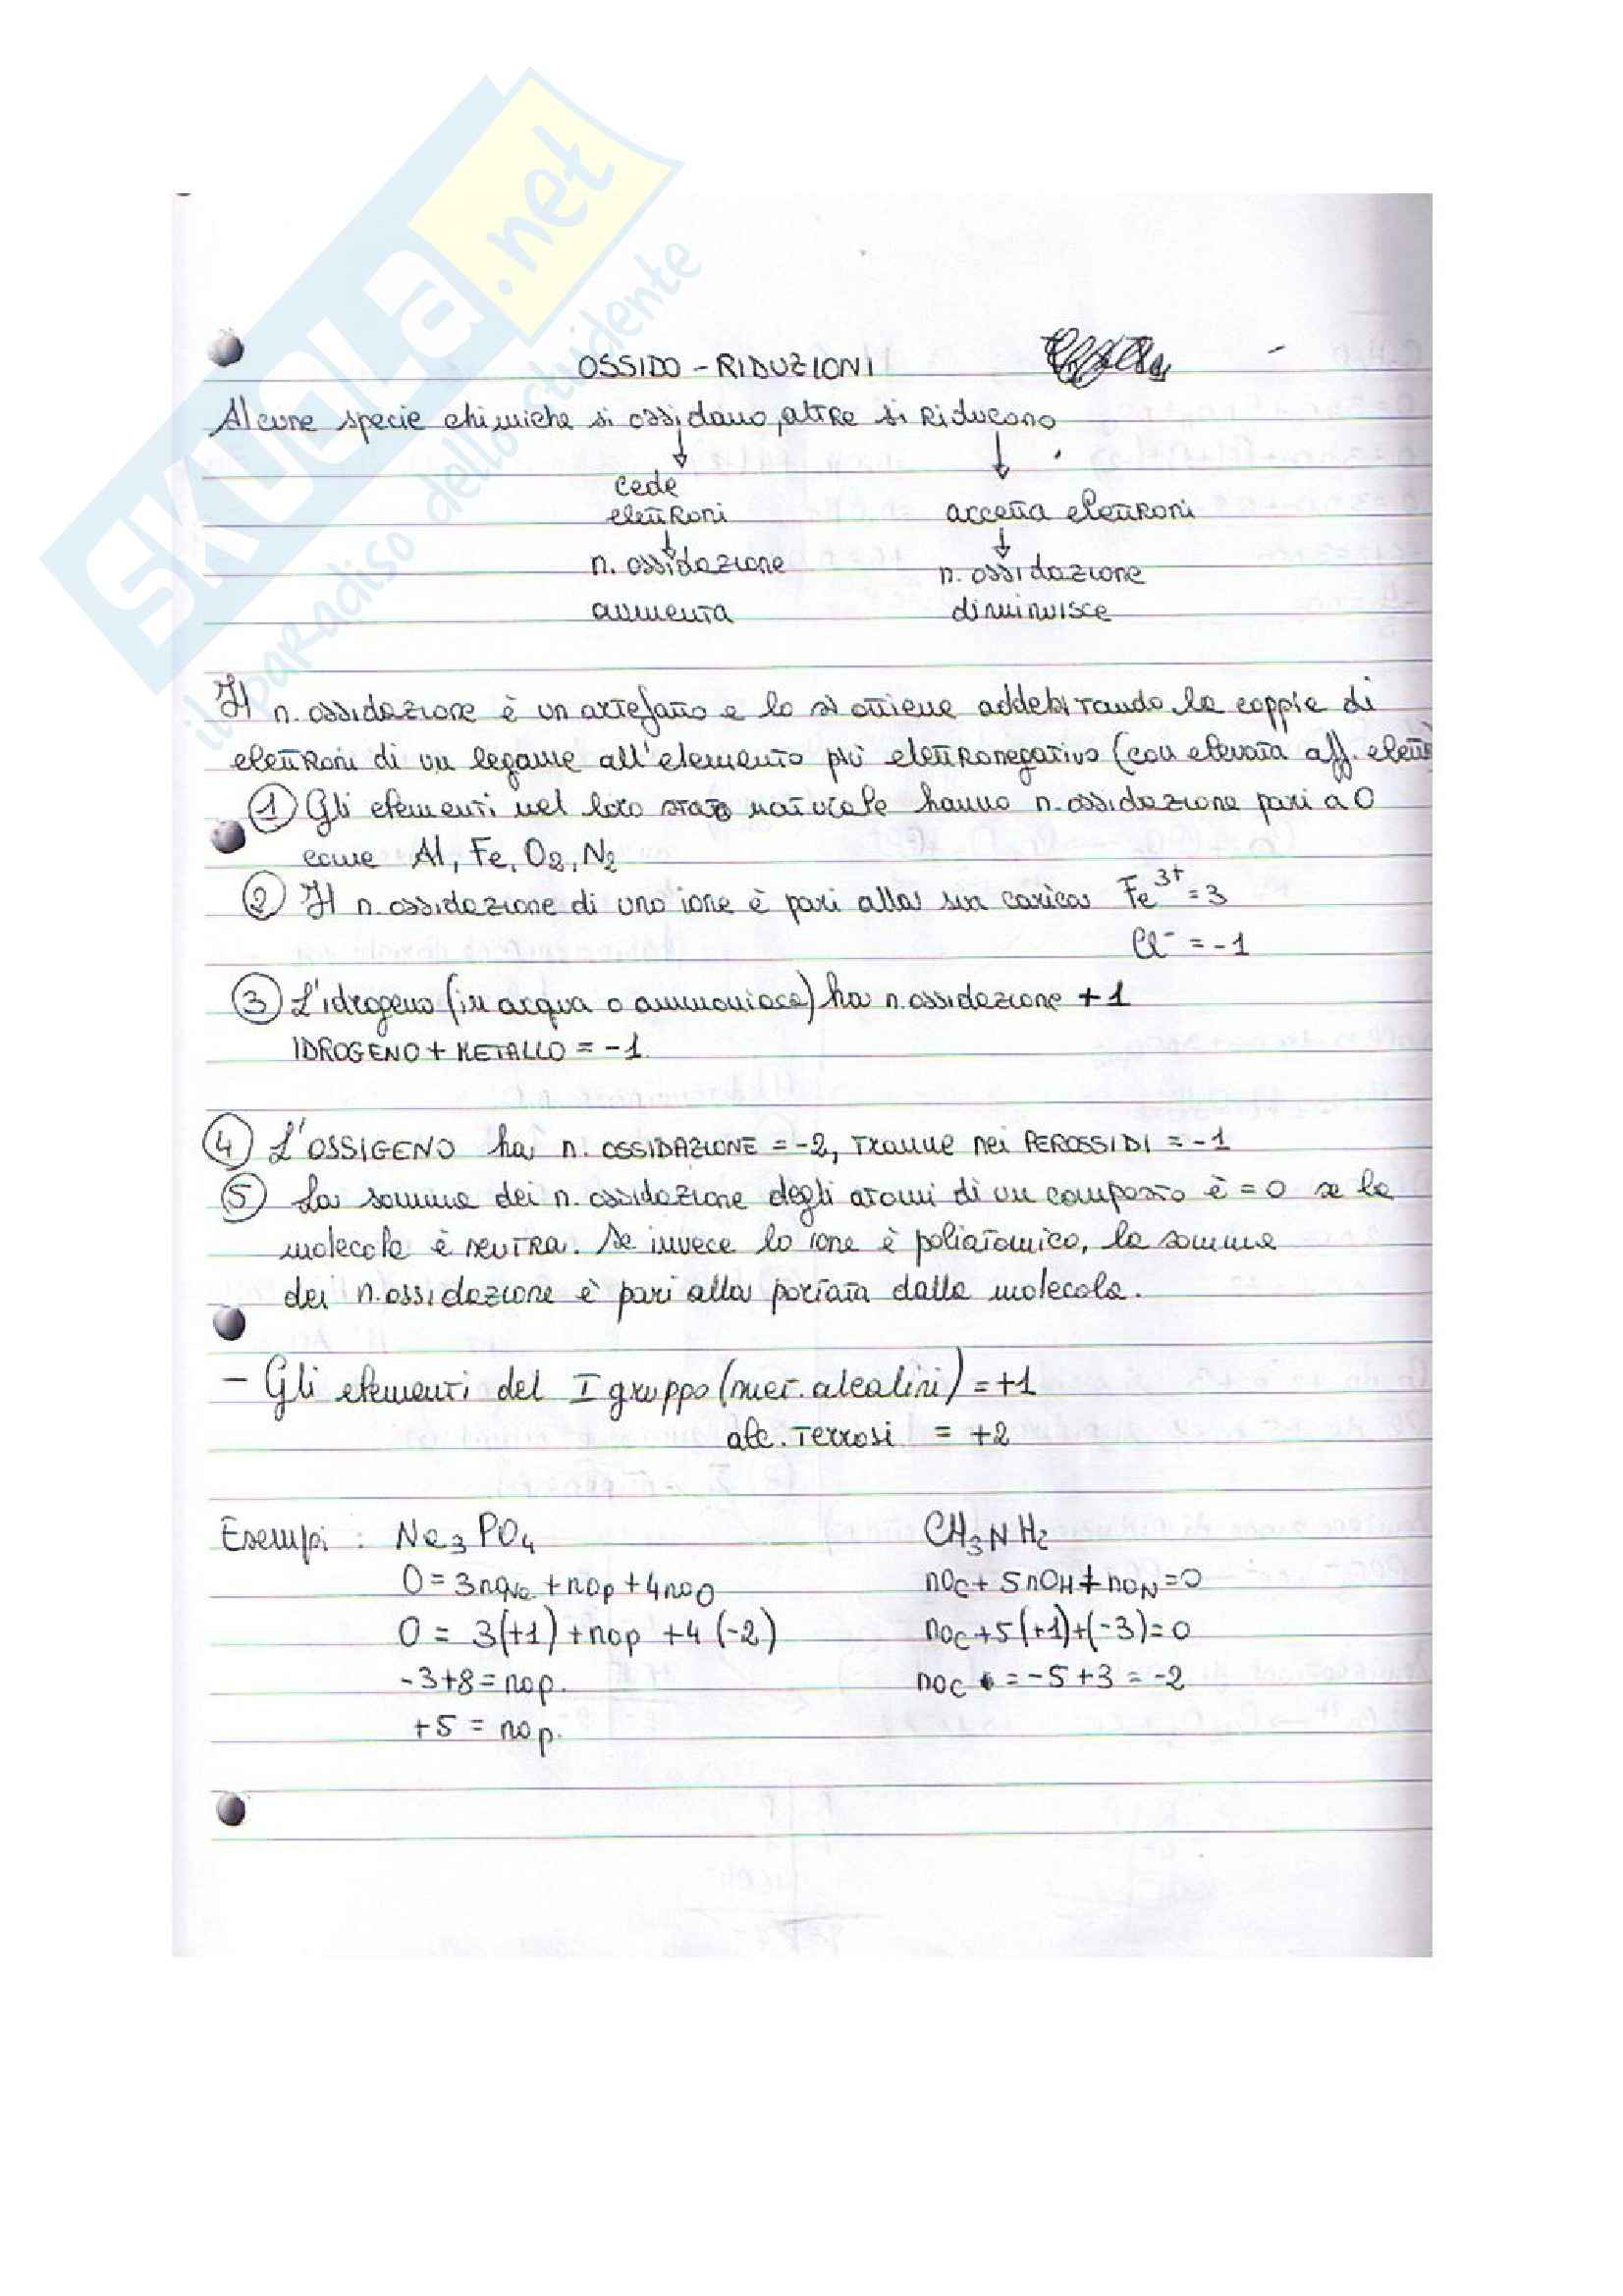 SKUOLA.net
il paradiso dello studente
OSSIDO - RIDUZIONI
Alcune specie chimiche si ossidano, altre si riducono
cede
elettroni
accetta elettroni
n. ossidazione
n. ossidazione
aumenta
diminuisce
Il n. ossidazione è un artefatto e lo si ottiene addebitando la coppia di
elettroni di un legame all'elemento più elettronegativo (con elevata aff. elett
① Gli elementi nel loro stato naturale hanno n. ossidazione pari a 0
come Al, Fe, O₂, N₂
② Il n. ossidazione di uno ione è pari alla sua carica Fe³⁺ = 3
Cl⁻ = -1
③ L'idrogeno (in acqua o ammoniaca) ha n. ossidazione +1
IDROGENO + METALLO = -1.
④ L'OSSIGENO ha n. OSSIDAZIONE = -2, tranne nei PEROSSIDI = -1
⑤ La somma dei n. ossidazione degli atomi di un composto è = 0 se la
molecola è neutra. Se invece lo ione è poliatomico, la somma
dei n. ossidazione è pari alla portata dalla molecola.
- Gli elementi del I gruppo (met. alcalini) = +1
alc. terrosi = +2
Esempi : Na₃PO₄
CH₃NH₂
0 = 3noNa + nop + 4noO
noC + 5noH + noN = 0
0 = 3(+1) + nop + 4(-2)
noC + 5(+1) + (-3) = 0
-3+8 = nop.
noC = -5+3 = -2
+5 = nop.